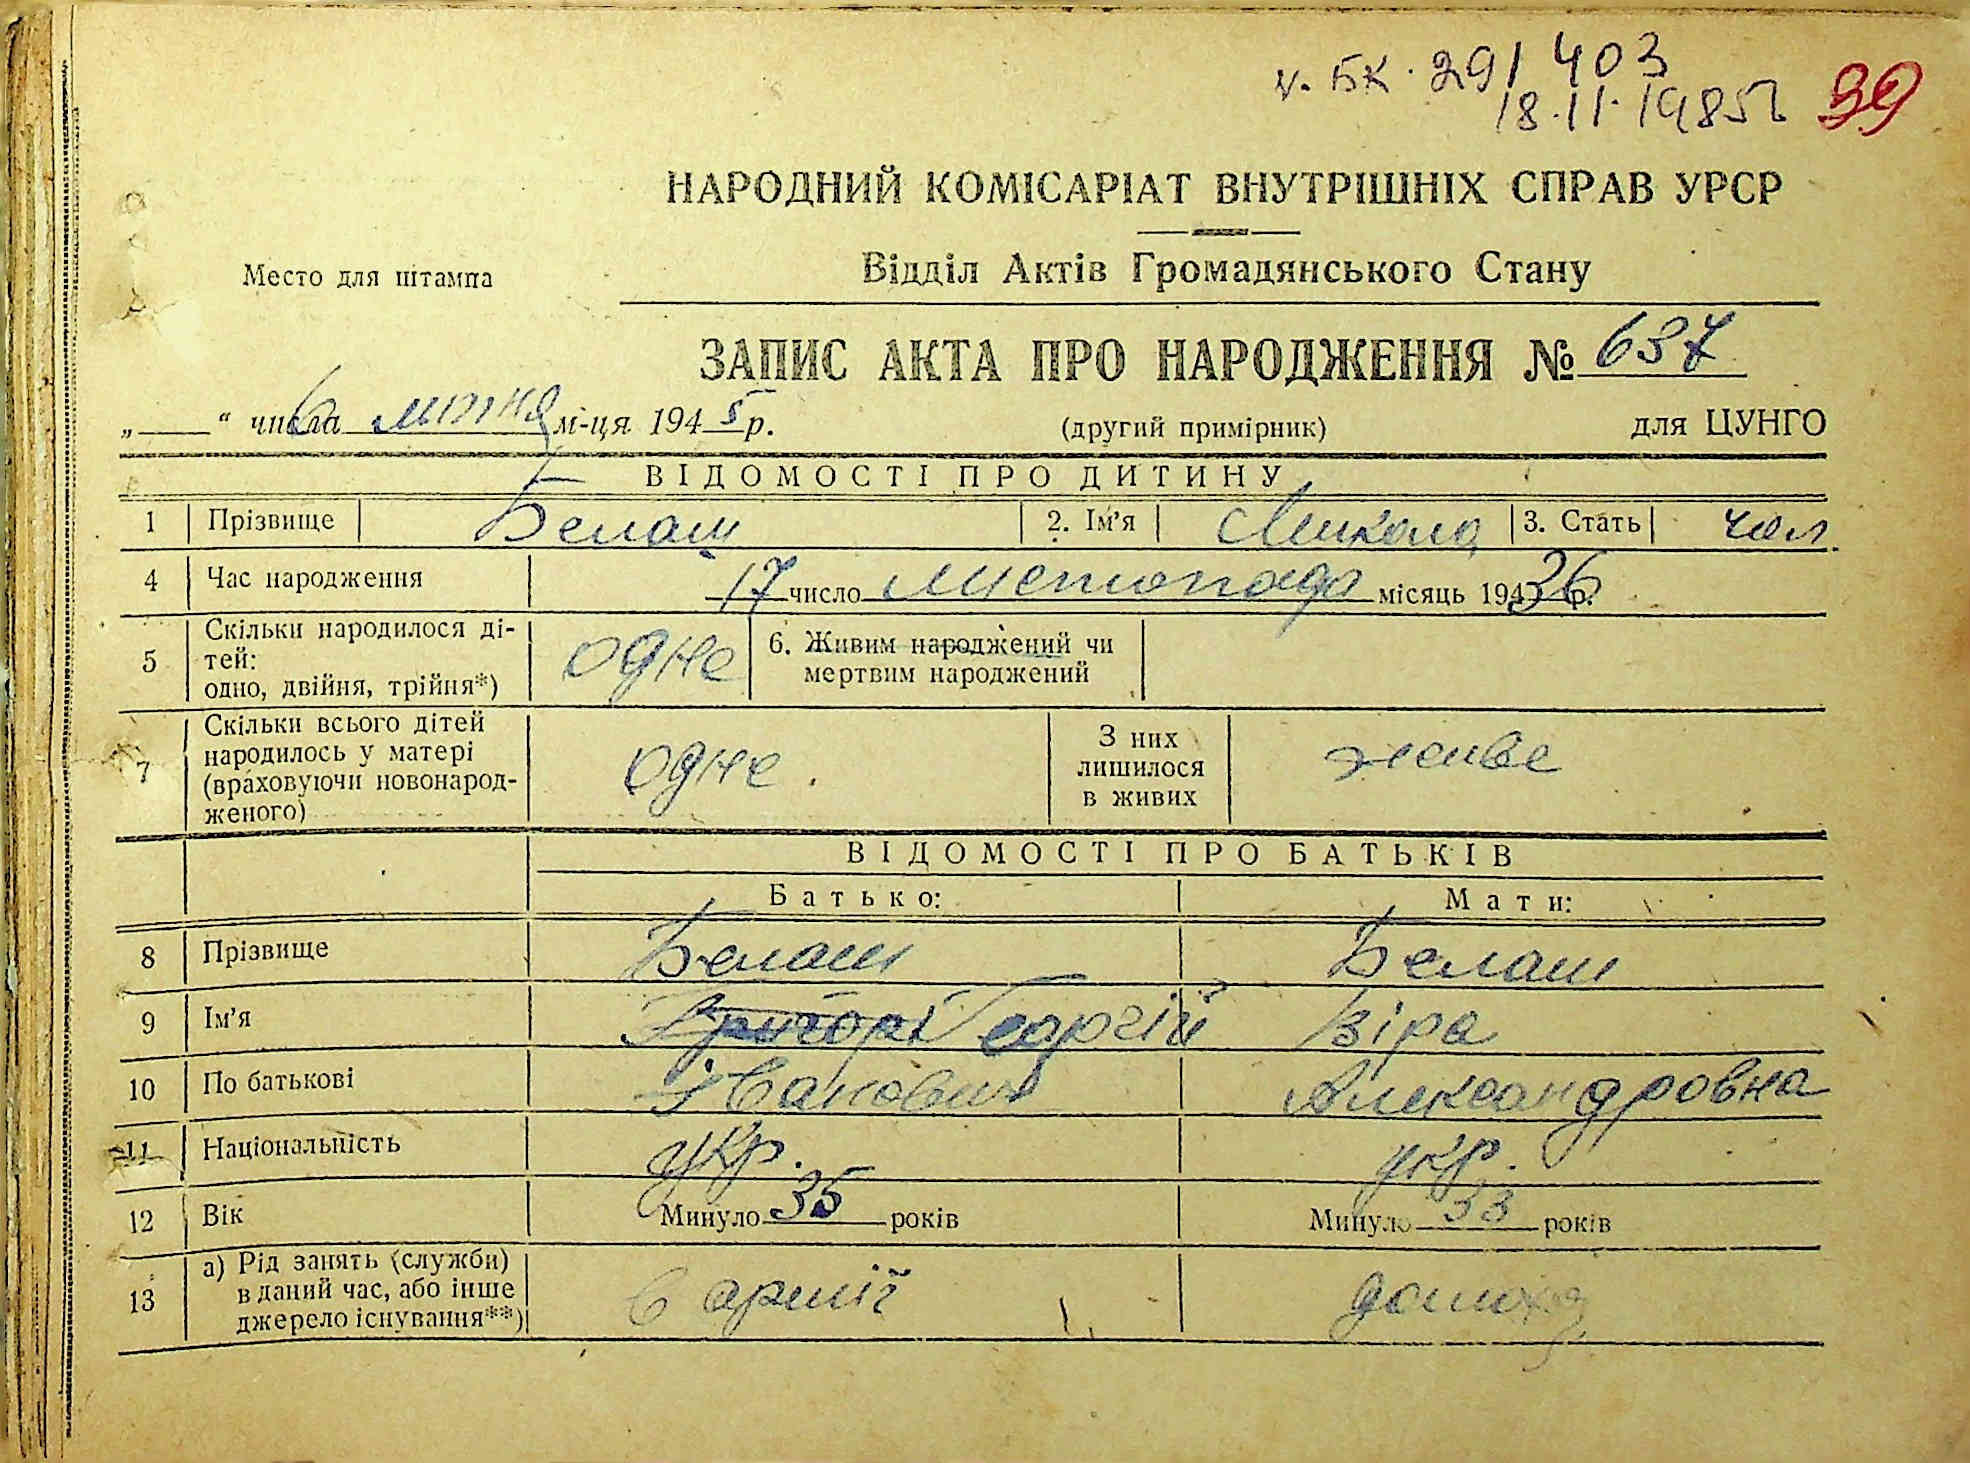 v. БК. 291 403
18.11.1985г 39
НАРОДНИЙ КОМІСАРІАТ ВНУТРІШНІХ СПРАВ УРСР
Место для штампа
Відділ Актів Громадянського Стану
ЗАПИС АКТА ПРО НАРОДЖЕННЯ № 637
„ “ числа 6 лютня м-ця 1945 р. (другий примірник) для ЦУНГО
ВІДОМОСТІ ПРО ДИТИНУ
1 Прізвище Белаш 2. Ім’я Микола 3. Стать чол.
4 Час народження 17 число листопада місяць 19436 р.
5 Скільки народилося ді-
тей:
одно, двійня, трійня*) одне 6. Живим народжений чи
мертвим народжений
7 Скільки всього дітей
народилось у матері
(враховуючи новонарод-
женого) одне. З них
лишилося
в живих живе
ВІДОМОСТІ ПРО БАТЬКІВ
Батько: Мати:
8 Прізвище Белаш Белаш
9 Ім’я Григорі Георгій Віра
10 По батькові Іванович Александровна
11 Національність укр. укр.
12 Вік Минуло 35 років Минуло 33 років
13 а) Рід занять (служби)
в даний час, або інше
джерело існування**) в армії домохоз